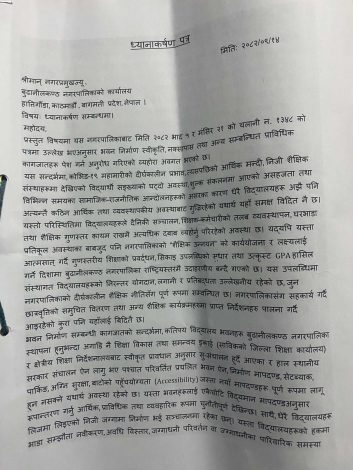 ध्यानाकर्षण पत्र
मिति: २०८२/०९/१४
श्रीमान् नगरप्रमुखज्यू,
बुढानीलकण्ठ नगरपालिकाको कार्यालय
हात्तिगौंडा, काठमाडौं, बागमती प्रदेश, नेपाल ।
विषय: ध्यानाकर्षण सम्बन्धमा।
महोदय,
प्रस्तुत विषयमा यस नगरपालिकाबाट मिति २०८२ भाद्र ५ र मंसिर २१ को चलानी नं. १३४८ को
पत्रमा उल्लेख भएअनुसार भवन निर्माण स्वीकृति, नक्सापास तथा अन्य सम्बन्धित प्राविधिक
कागजातहरू पेश गर्न अनुरोध गरिएको व्यहोरा अवगत भएको छ।
यस सन्दर्भमा, कोभिड-१९ महामारीको दीर्घकालीन प्रभाव, त्यसपछिको आर्थिक मन्दी, निजी शैक्षिक
संस्थाहरूमा देखिएको विद्यार्थी सङ्ख्याको घट्दो अवस्था, शुल्क संकलनमा आएको असहजता तथा
विभिन्न समयका सामाजिक-राजनीतिक आन्दोलनहरूको असरका कारण धेरै विद्यालयहरू अझै पनि
अत्यन्तै कठिन आर्थिक तथा व्यवस्थापकीय अवस्थाबाट गुज्रिरहेको यथार्थ यहाँ समक्ष विदितै नै छ।
यस्तो परिस्थितिमा विद्यालयहरूले दैनिकी सञ्चालन, शिक्षक-कर्मचारीको तलब व्यवस्थापन, घरभाडा
तथा शैक्षिक गुणस्तर कायम राख्नमै अत्यधिक दबाब व्यहोर्नु परिरहेको अवस्था छ। यद्यपि यस्ता
प्रतिकूल अवस्थाका बाबजुद पनि नगरपालिकाको "शैक्षिक उन्नयन" को कार्ययोजना र लक्ष्यलाई
आत्मसात् गर्दै गुणस्तरीय शिक्षाको प्रवर्द्धन, सिकाइ उपलब्धिको सुधार तथा उत्कृष्ट GPA हासिल
गर्ने दिशामा बुढानीलकण्ठ नगरपालिका राष्ट्रियस्तरमै उदाहरणीय बन्दै गएको छ। यस उपलब्धिमा
संस्थागत विद्यालयहरूको निरन्तर योगदान, लगानी र प्रतिबद्धता उल्लेखनीय रहेको छ, जुन
नगरपालिकाको दीर्घकालीन शैक्षिक नीतिसँग पूर्ण रूपमा सम्बन्धित छ। नगरपालिकासँग सहकार्य गर्दै
छात्रवृत्तिको समुचित वितरण तथा अन्य शैक्षिक कार्यक्रमहरूमा प्राप्त निर्देशनहरू पालना गर्दै
आइरहेको कुरा पनि यहाँलाई विदितै छ।
भवन निर्माण सम्बन्धी कागजातको सन्दर्भमा, कतिपय विद्यालय भवनहरू बुढानीलकण्ठ नगरपालिका
स्थापना हुनुभन्दा अगाडि नै शिक्षा विकास तथा समन्वय इकाई (साविकको जिल्ला शिक्षा कार्यालय)
र क्षेत्रीय शिक्षा निर्देशनालयबाट स्वीकृत प्रावधान अनुसार सञ्चालन हुदै आएका र हाल स्थानीय
सरकार संचालन ऐन लागु भए पश्चात परिवर्तित प्रचलित भवन ऐन, निर्माण मापदण्ड, सेटब्याक,
पार्किङ, अग्नि सुरक्षा, बाटोको पहुँचयोग्यता (Accessibility) जस्ता नयाँ मापदण्डहरू पूर्ण रूपमा लागू
हुन नसक्ने यथार्थ अवस्था रहेको छ। यस्ता भवनहरूलाई एकैचोटि विद्यमान मापदण्डअनुसार
रूपान्तरण गर्नु आर्थिक, प्राविधिक तथा व्यवहारिक रूपमा चुनौतीपूर्ण देखिन्छ। साथै, धेरै विद्यालयहरू
लिजमा लिइएको निजी जग्गामा निर्माण भई सञ्चालनमा रहेका छन्। यस्ता विद्यालयहरूको हकमा
भाडा सम्झौता नवीकरण, अवधि विस्तार, जग्गाधनी परिवर्तन वा जग्गाधनीका पारिवारिक समस्या